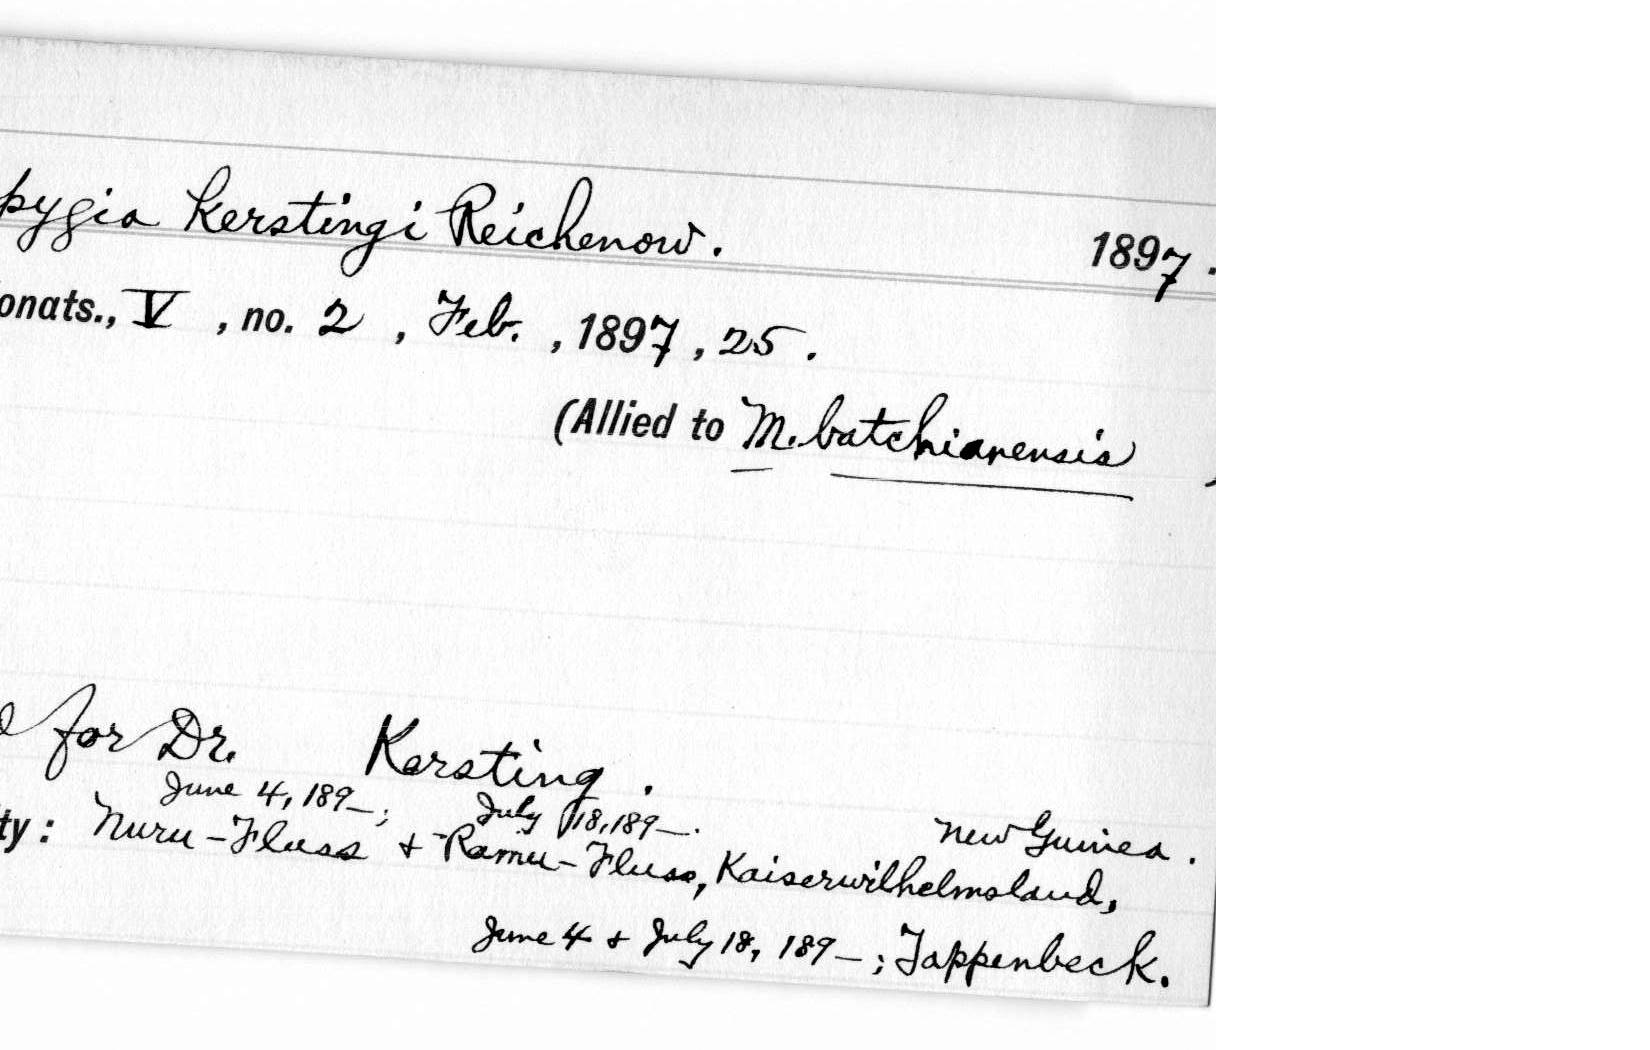 pygia kerstingi Reichenow. 1897.
onats., V, no. 2, Feb., 1897, 25.
(Allied to M. batchianensis )
d for Dr. Kersting.
June 4, 189_; July 18, 189_.
New Guinea.
ty: Nuru-Fluss & Ramu-Fluss, Kaiserwilhelmsland,
June 4 & July 18, 189_; Tappenbeck.